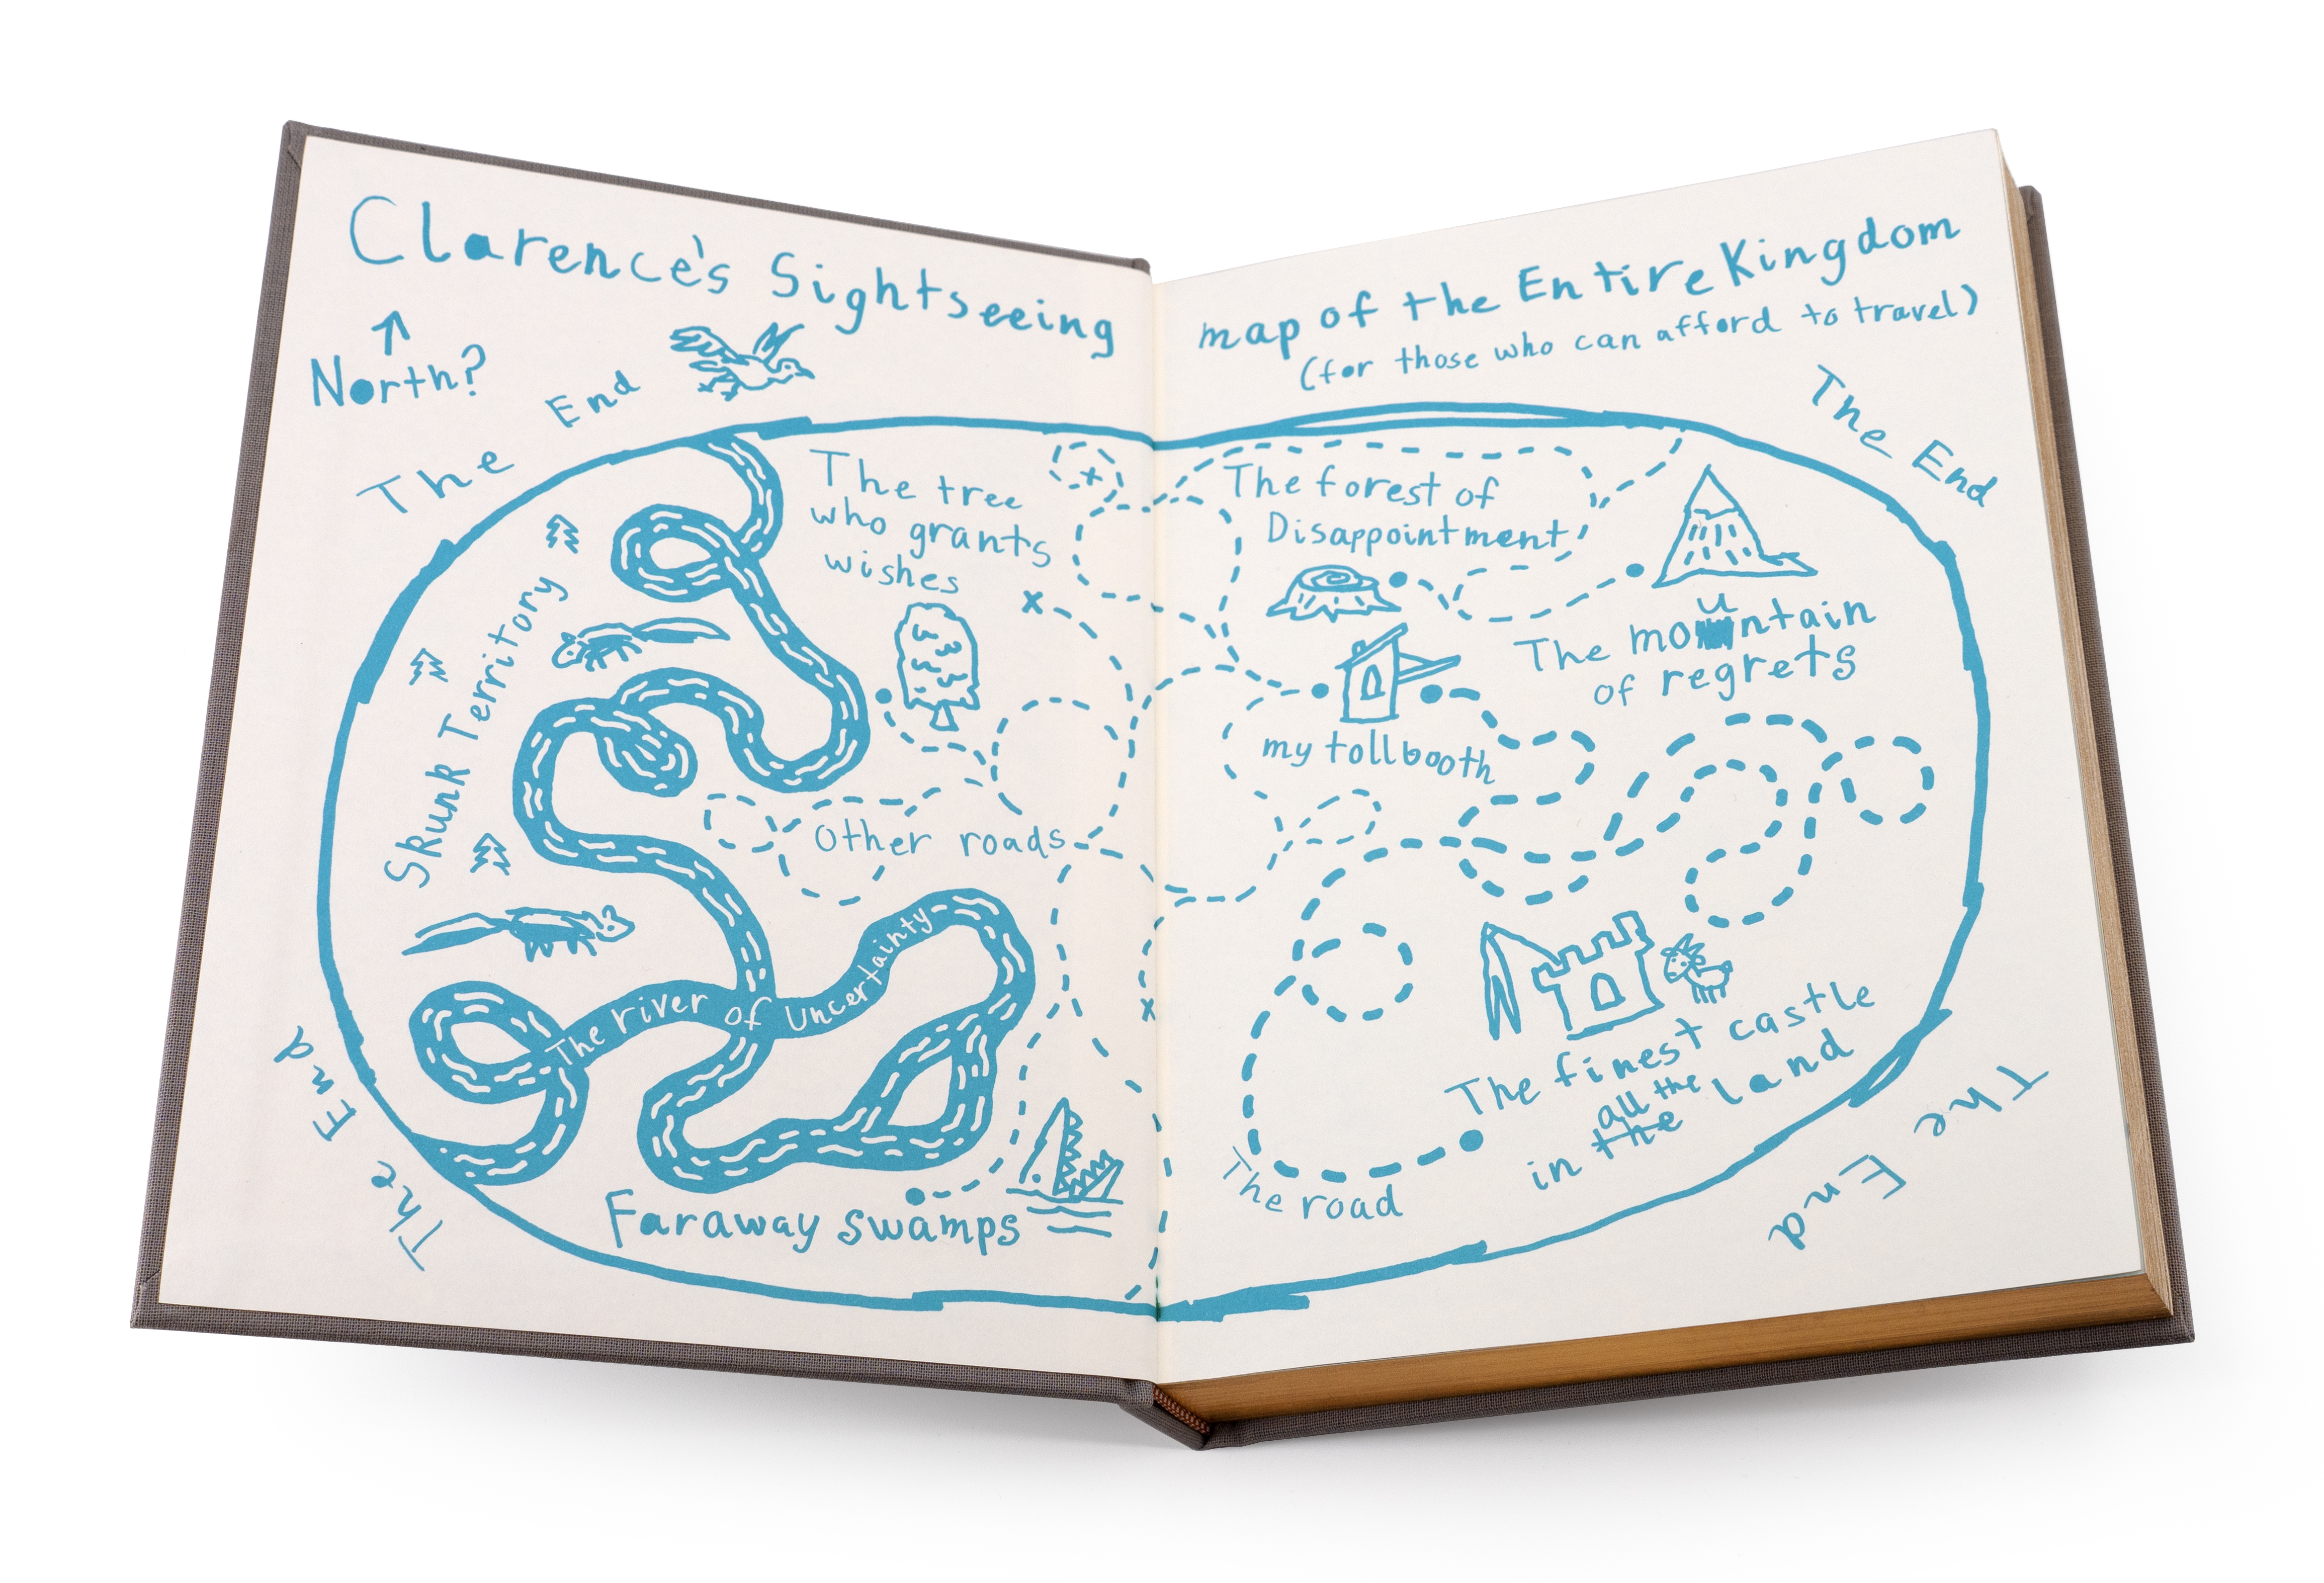 Clarence's Sightseeing map of the Entire Kingdom
(for those who can afford to travel)
North?
The End
The End
The tree
who grants
wishes
The forest of
Disappointment
Skunk Territory
The mountain
of regrets
my tollbooth
Other roads
The river of Uncertainty
The finest castle
all the
in the land
The road
Faraway swamps
The End
The End